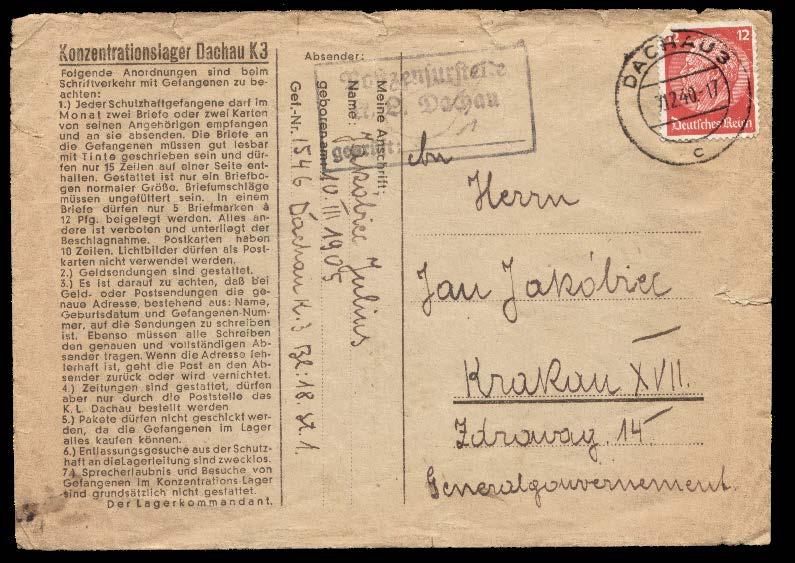 Konzentrationslager Dachau K3
Folgende Anordnungen sind beim
Schriftverkehr mit Gefangenen zu be-
achten:
1.) Jeder Schutzhaftgefangene darf im
Monat zwei Briefe oder zwei Karten
von seinen Angehörigen empfangen
und an sie absenden. Die Briefe an
die Gefangenen müssen gut lesbar
mit Tinte geschrieben sein und dür-
fen nur 15 Zeilen auf einer Seite ent-
halten. Gestattet ist nur ein Briefbo-
gen normaler Größe. Briefumschläge
müssen ungefüttert sein. In einem
Briefe dürfen nur 5 Briefmarken à
12 Pfg. beigelegt werden. Alles an-
dere ist verboten und unterliegt der
Beschlagnahme. Postkarten haben
10 Zeilen. Lichtbilder dürfen als Post-
karten nicht verwendet werden.
2.) Geldsendungen sind gestattet.
3.) Es ist darauf zu achten, daß bei
Geld- oder Postsendungen die ge-
naue Adresse, bestehend aus: Name,
Geburtsdatum und Gefangenen-Num-
mer, auf die Sendungen zu schreiben
ist. Ebenso müssen alle Schreiben
den genauen und vollständigen Ab-
sender tragen. Wenn die Adresse feh-
lerhaft ist, geht die Post an den Ab-
sender zurück oder wird vernichtet.
4.) Zeitungen sind gestattet, dürfen
aber nur durch die Poststelle des
K. L. Dachau bestellt werden
5.) Pakete dürfen nicht geschickt wer-
den, da die Gefangenen im Lager
alles kaufen können.
6.) Entlassungsgesuche aus der Schutz-
haft an die Lagerleitung sind zwecklos.
7.) Sprecherlaubnis und Besuche von
Gefangenen im Konzentrations-Lager
sind grundsätzlich nicht gestattet.
Der Lagerkommandant.
Absender:
Meine Anschrift:
Name: Jakóbiec Julius
geboren am: 10. III 1905
Gef.-Nr. 1546 Dachau K. 3 Bl: 18. St. 1.
Postzensurstelle
K. L. Dachau
geprüft:
DACHAU 3
31.12.40. 17
c
12
Deutsches Reich
An
Herrn
Jan Jakóbiec
Krakau XVII.
Zdrowa g. 14
Generalgouvernement.